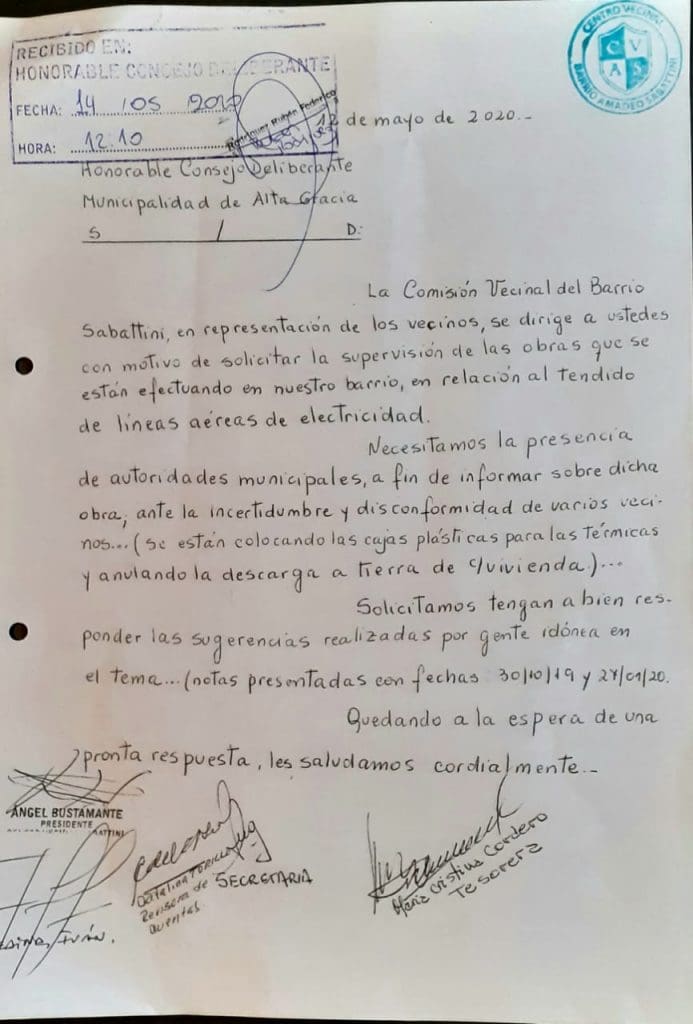 CENTRO VECINAL
BARRIO AMADEO SABATTINI
C V
A S
RECIBIDO EN:
HONORABLE CONCEJO DELIBERANTE
FECHA: 14 / 05
HORA: 12:10
Rodriguez Rubén Federico
12 de mayo de 2020.-
Honorable Consejo Deliberante
Municipalidad de Alta Gracia
S / D:
La Comisión Vecinal del Barrio
Sabattini, en representación de los vecinos, se dirige a ustedes
con motivo de solicitar la supervisión de las obras que se
están efectuando en nuestro barrio, en relación al tendido
de líneas aéreas de electricidad.
Necesitamos la presencia
de autoridades municipales, a fin de informar sobre dicha
obra, ante la incertidumbre y disconformidad de varios veci-
nos...(se están colocando las cajas plásticas para las térmicas
y anulando la descarga a tierra de c/vivienda.)...
Solicitamos tengan a bien res-
ponder las sugerencias realizadas por gente idónea en
el tema...(notas presentadas con fechas 30/10/19 y 27/01/20.
Quedando a la espera de una
pronta respuesta, les saludamos cordialmente..-
ANGEL BUSTAMANTE
PRESIDENTE
Revisora de
cuentas
SECRETARIA
María Cristina Cordero
Tesorera
Iván.